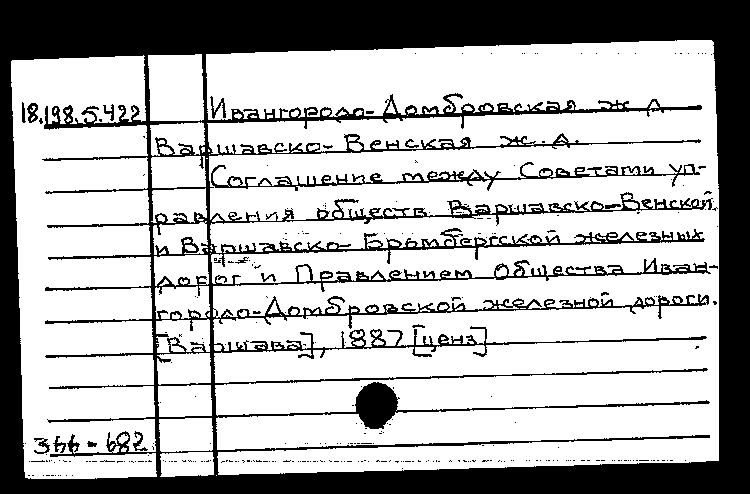 18.198.5.422 Ивангородо-Домбровская ж д
Варшавско-Венская ж.д.
Соглашение между Советами уп-
равления обществ Варшавско-Венской
и Варшавско-Бромбергской железных
дорог и Правлением Общества Иван-
городо-Домбровской железной дороги.
[Варшава], 1887 [ценз]
Э44-682